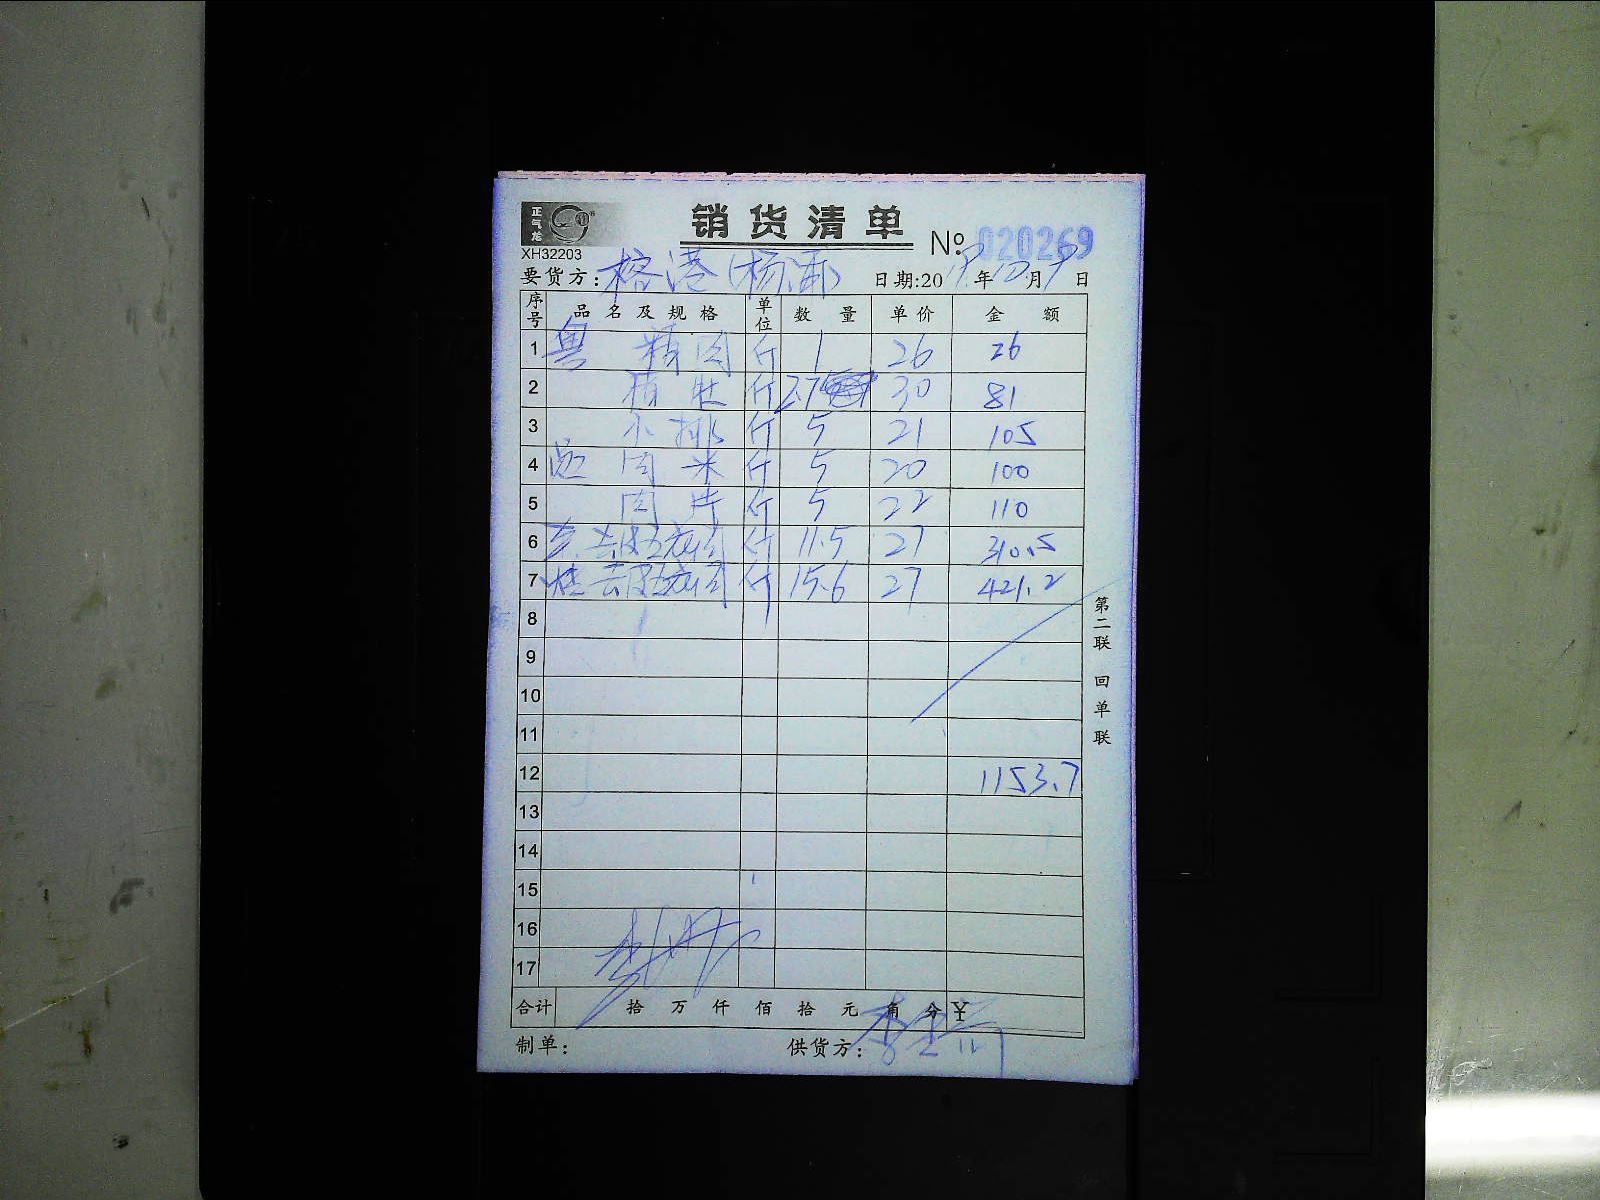 正气龙
销货清单
XH32203
№ 020269
要货方: 榕港(杨浦) 日期:2019年10月9日
序号 品名及规格 单位 数量 单价 金额
1 粤 精肉 斤 1 26 26
2 斤 2.7 30 81
3 小排 斤 5 21 105
4 肉米 斤 5 20 100
5 肉片 斤 5 22 110
6 去皮五花肉 斤 11.5 27 310.5
7 去皮五花肉 斤 15.6 27 421.2
8
9
10
11
12 1153.7
13
14
15
16
17
合计 拾 万 仟 佰 拾 元 角 分 ¥
制单: 供货方:
第二联 回单联